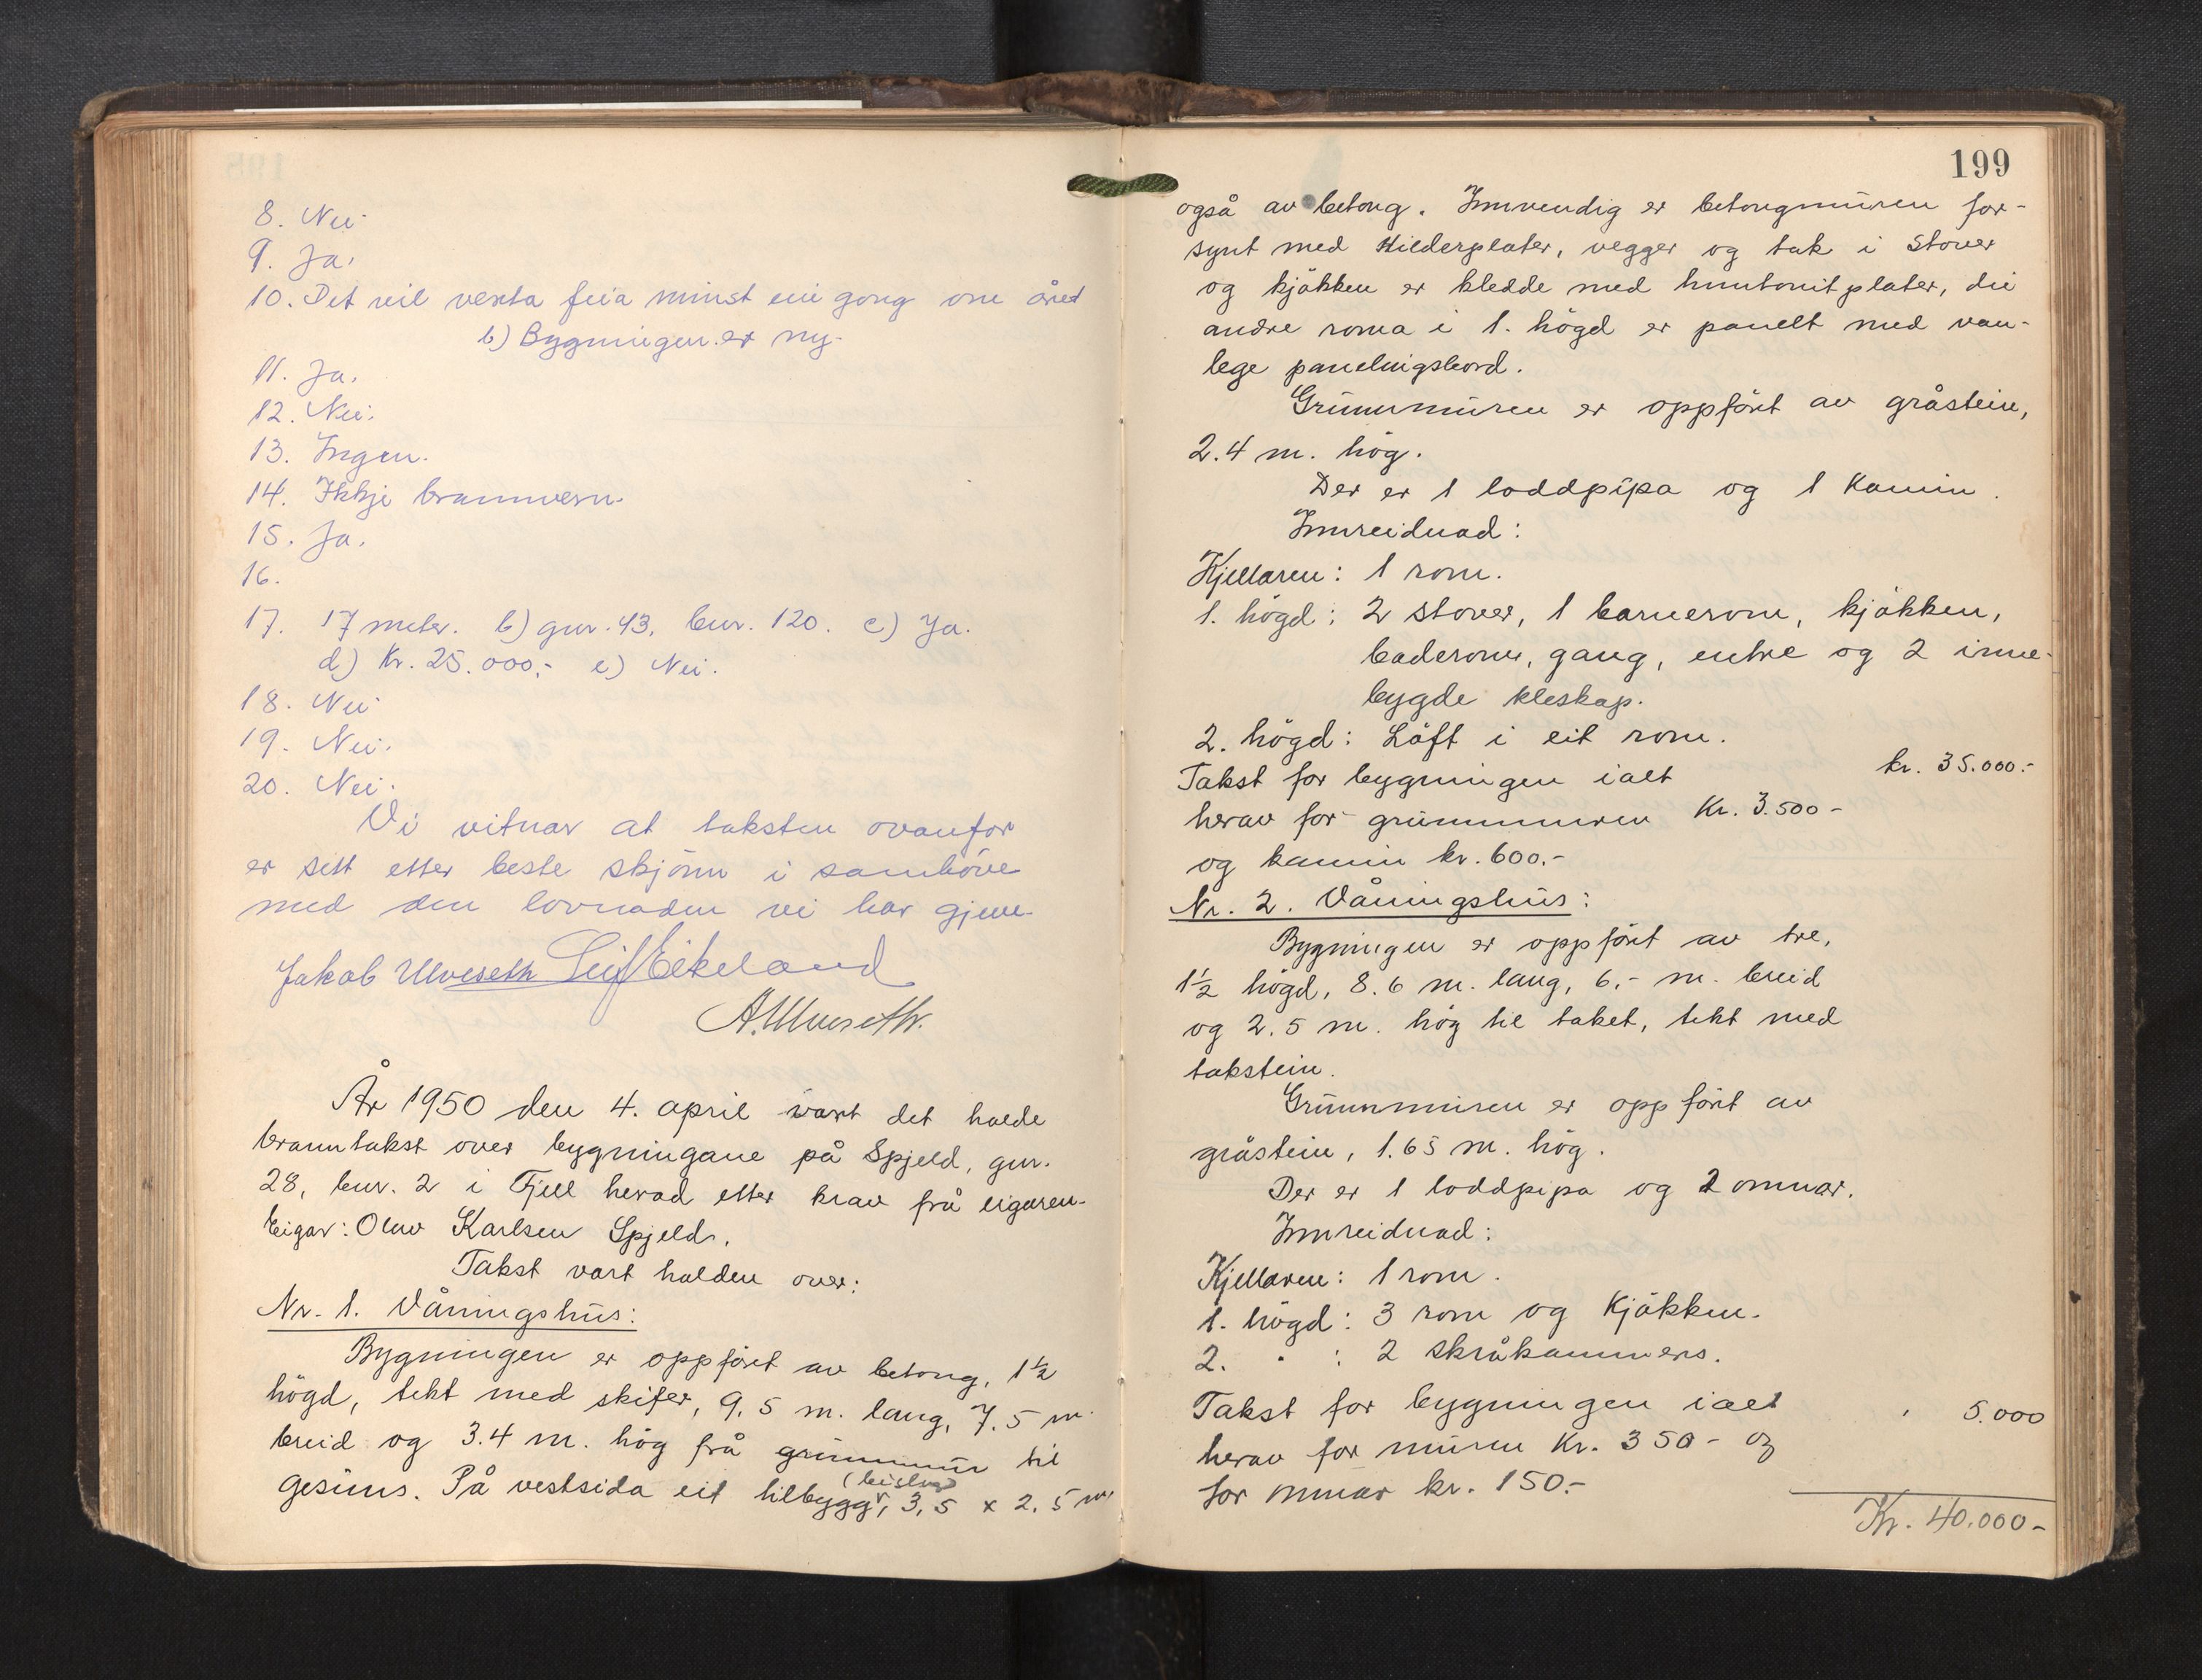 8. Nei
9. Ja.
10. Det vil verta feia minst ein gong om året
b) Bygningen er ny.
11. Ja.
12. Nei.
13. Ingen.
14. Ikkje brannvern.
15. Ja.
16.
17. 17 meter. b) gnr. 43, bnr. 120. c) Ja.
d) Kr. 25.000,- e) Nei.
18. Nei
19. Nei.
20. Nei.
Vi vitnar at taksten ovanfor
er sett etter beste skjönn i samhöve
med den lovnaden vi har gjeve.
Jakob Ulveseth Leif Eikeland
A. Ulveseth.
År 1950 den 4. april vart det halde
branntakst over bygningane på Spjeld, gnr.
28, bnr. 2 i Fjell herad etter krav frå eigaren.
Eigar: Olav Karlsen Spjeld.
Takst vart halden over:
Nr. 1. Våningshus:
Bygningen er oppfört av betong, 1½
högd, tekt med skifer, 9,5 m. lang, 7.5 m.
breid og 3.4 m. hög frå grunnmur til
(beislag)
gesims. På vestsida eit tilbygg, 3,5 x 2,5 m.
199
også av betong. Innvendig er betongmuren for-
synt med kilderplater, vegger og tak i stover
og kjökken er kledde med huntonitplater, dei
andre roma i 1. högd er panelt med van-
lege panelingsbord.
Grunnmuren er oppfört av gråstein,
2.4 m. hög.
Der er 1 loddpipa og 1 Kamin.
Innreidnad:
Kjellaren: 1 rom.
1. högd: 2 stover, 1 barnerom, kjökken,
baderom, gang, entre og 2 inne-
bygde kleskap.
2. högd: Löft i eit rom.
Takst for bygningen ialt kr. 35.000.-
herav for grunnmuren Kr. 3.500-
og kamin kr. 600.-
Nr. 2. Våningshus:
Bygningen er oppfört av tre,
1½ högd, 8.6 m. lang, 6,- m. breid
og 2.5 m. hög til taket, tekt med
takstein.
Grunnmuren er oppfört av
gråstein, 1.65 m. hög.
Der er 1 loddpipa og 2 omnar.
Innreidnad:
Kjellaren: 1 rom.
1. högd: 3 rom og Kjökken.
2. " : 2 skråkammers.
Takst for bygningen ialt " 5.000
herav for muren Kr. 350- og
for omnar kr. 150.-
Kr. 40.000-